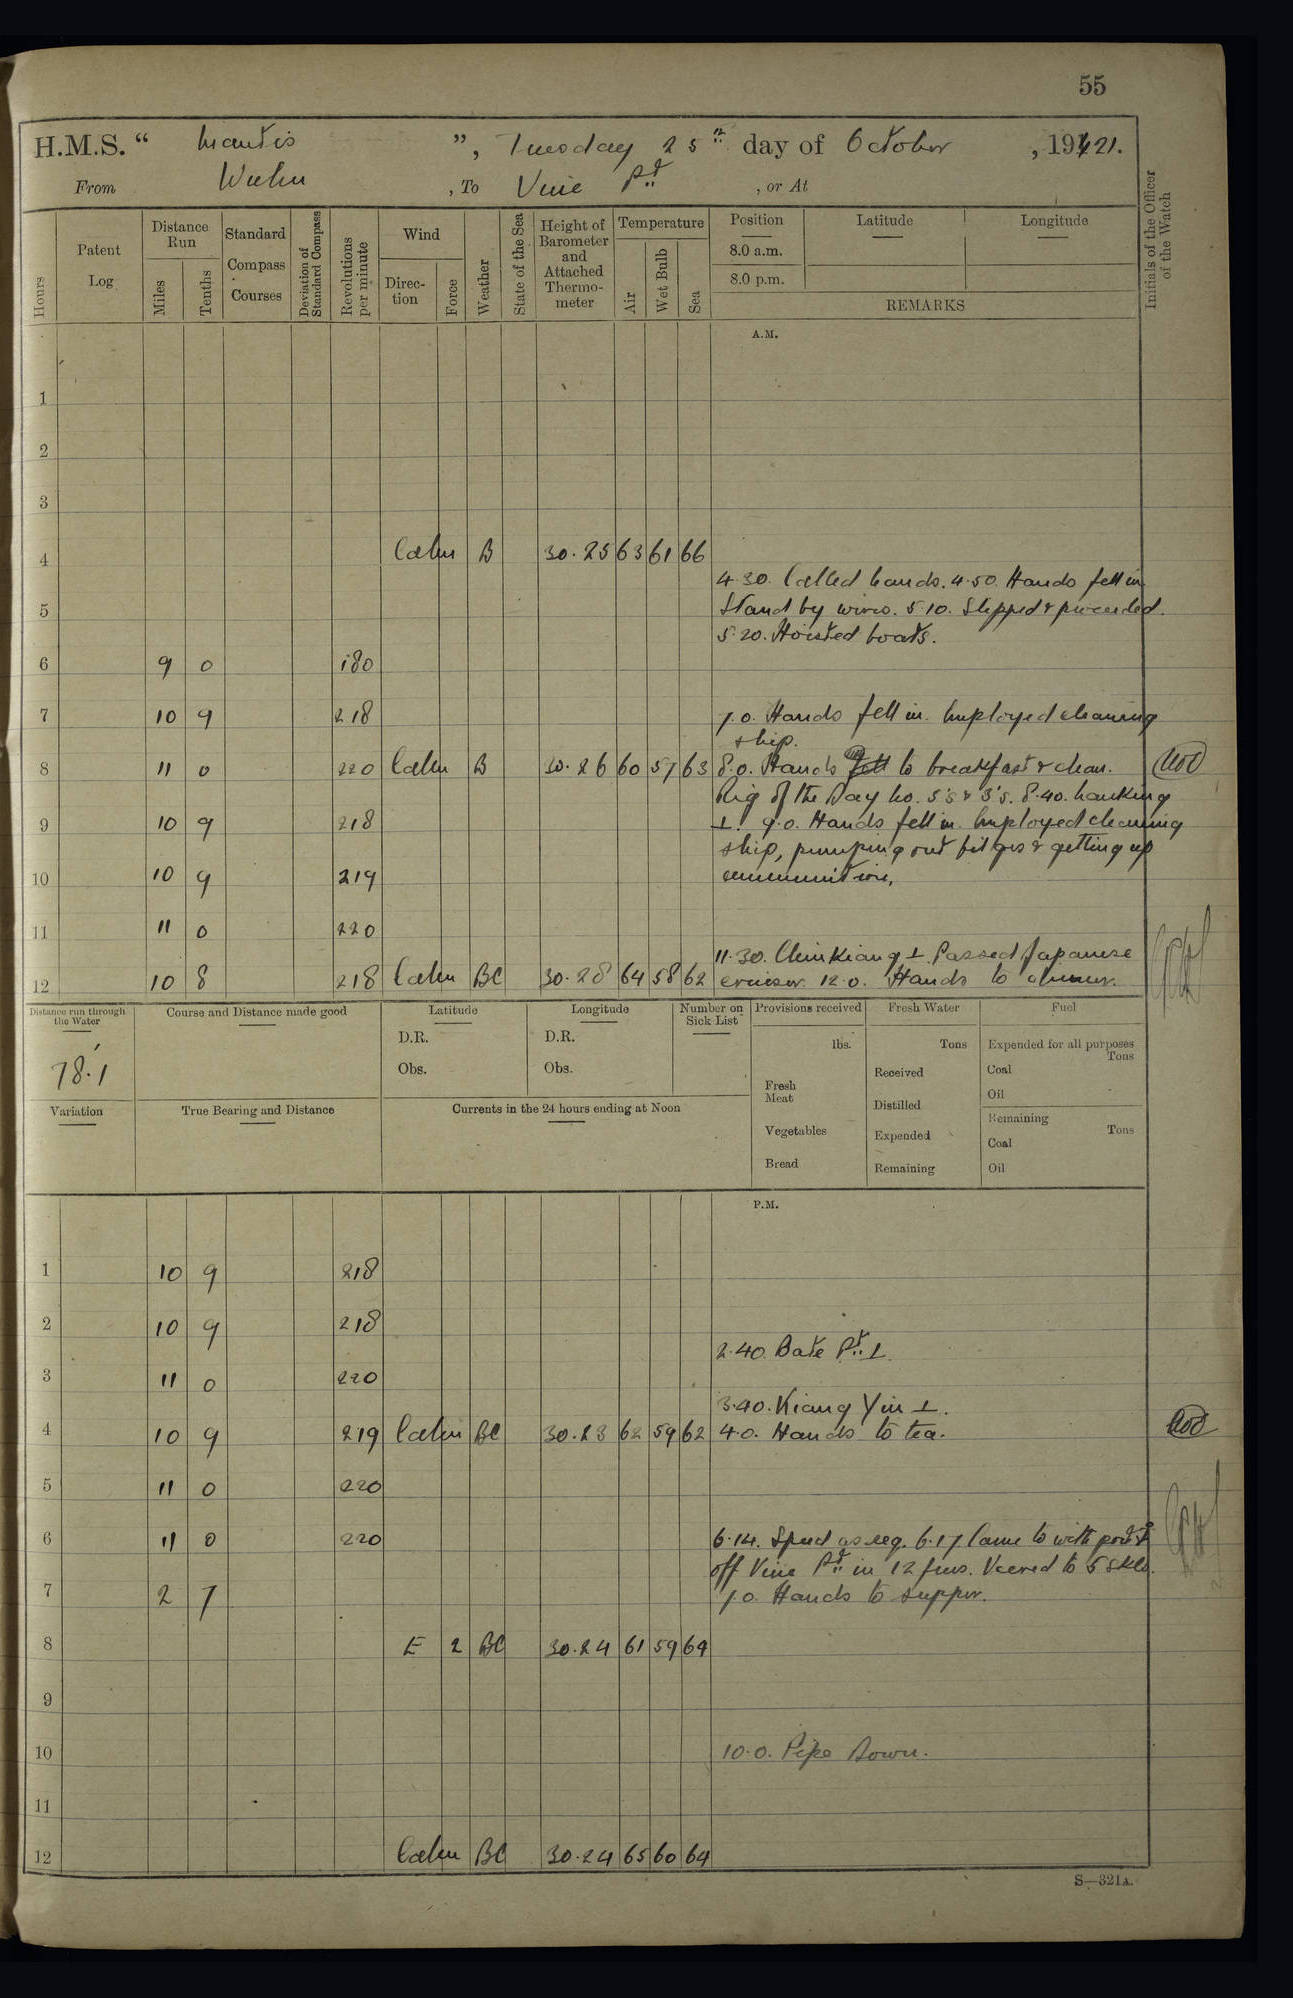 55
H.M.S. “ Mantis ”, Tuesday 25th day of October , 1921.
From Wuhu , To Vine Pt , or At
Hours
Patent Log
Distance Run
Miles
Tenths
Standard Compass Courses
Deviation of Standard Compass
Revolutions per minute
Wind
Direction
Force
Weather
State of the Sea
Height of Barometer and Attached Thermometer
Temperature
Air
Wet Bulb
Sea
Position
8.0 a.m.
8.0 p.m.
Latitude
Longitude
REMARKS
Initials of the Officer of the Watch
A.M.
1
2
3
4 Calm B 30.25 63 61 66
4.30. Called hands. 4.50. Hands fell in
5 Stand by wires. 5.10. Slipped & proceeded.
5.20. Hoisted boats.
6 9 0 180
7 10 9 218 7.0. Hands fell in. Employed cleaning
ship.
8 11 0 220 Calm B 30.26 60 57 63 8.0. Hands to breakfast & clean.
Rig of the Day No. 5's & 3's. 8.40.
9 10 9 218 ⊥. 9.0. Hands fell in. Employed cleaning
ship, pumping out bilges & getting up
10 10 9 219 ammunition.
11 11 0 220
11.30. Chinkiang ⊥. Passed Japanese
12 10 8 218 Calm BC 30.28 64 58 62 cruiser. 12.0. Hands to dinner.
Distance run through the Water
78.1
Course and Distance made good
Latitude
D.R.
Obs.
Longitude
D.R.
Obs.
Number on Sick List
Provisions received
lbs.
Fresh Meat
Vegetables
Bread
Fresh Water
Tons
Received
Distilled
Expended
Remaining
Fuel
Expended for all purposes
Tons
Coal
Oil
Remaining
Tons
Coal
Oil
Variation
True Bearing and Distance
Currents in the 24 hours ending at Noon
P.M.
1 10 9 218
2 10 9 218
2.40. Bate Pt ⊥.
3 11 0 220
3.40. Kiang Yin ⊥.
4 10 9 219 Calm BC 30.23 62 59 62 4.0. Hands to tea.
5 11 0 220
6 11 0 220 6.14. Speed as req. 6.17 Came to with port
off Vine Pt in 12 fms. Veered to 5 skls.
7 2 7 7.0. Hands to supper.
8 E 2 BC 30.24 61 59 64
9
10 10.0. Pipe Down.
11
12 Calm BC 30.24 65 60 64
S—321A.